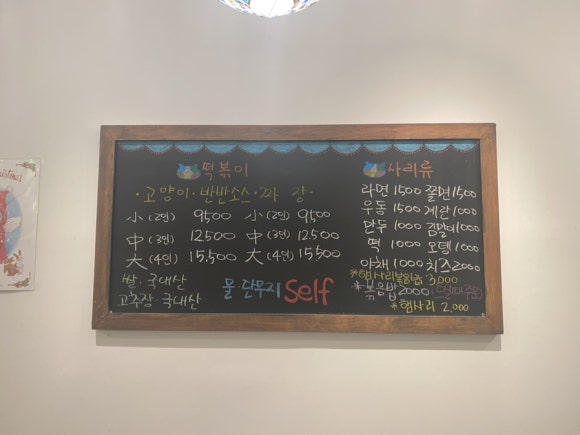 떡볶이
·고양이·반반소스·짜 장·
小 (2인) 9,500 小 (2인) 9,500
中 (3인) 12500 中 (3인) 12500
大 (4인) 15,500 大 (4인) 15,500
쌀·국내산
고추장·국내산
물·단무지 Self
사리류
라면 1500 쫄면 1500
우동 1500 계란 1000
만두 1000 김말이 1000
떡 1000 오뎅 1000
야채 1000 치즈 2000
*햄사리볶음밥 3,000
*볶음밥 2000
*햄사리 2,000